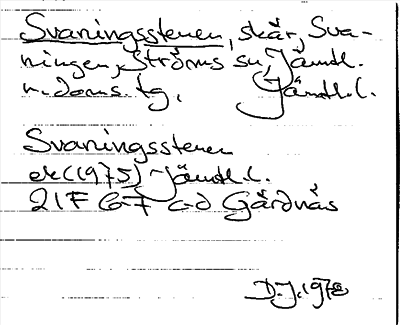 Svaningsstenen, skär, Sva-
ningen, Ströms sn, Jämtl.
n. doms. tg, Jämtl. l.
Svaningsstenen
ek (1975) Jämtl. l.
21F 6-7 c-d Gärdnäs
D.J. 1978